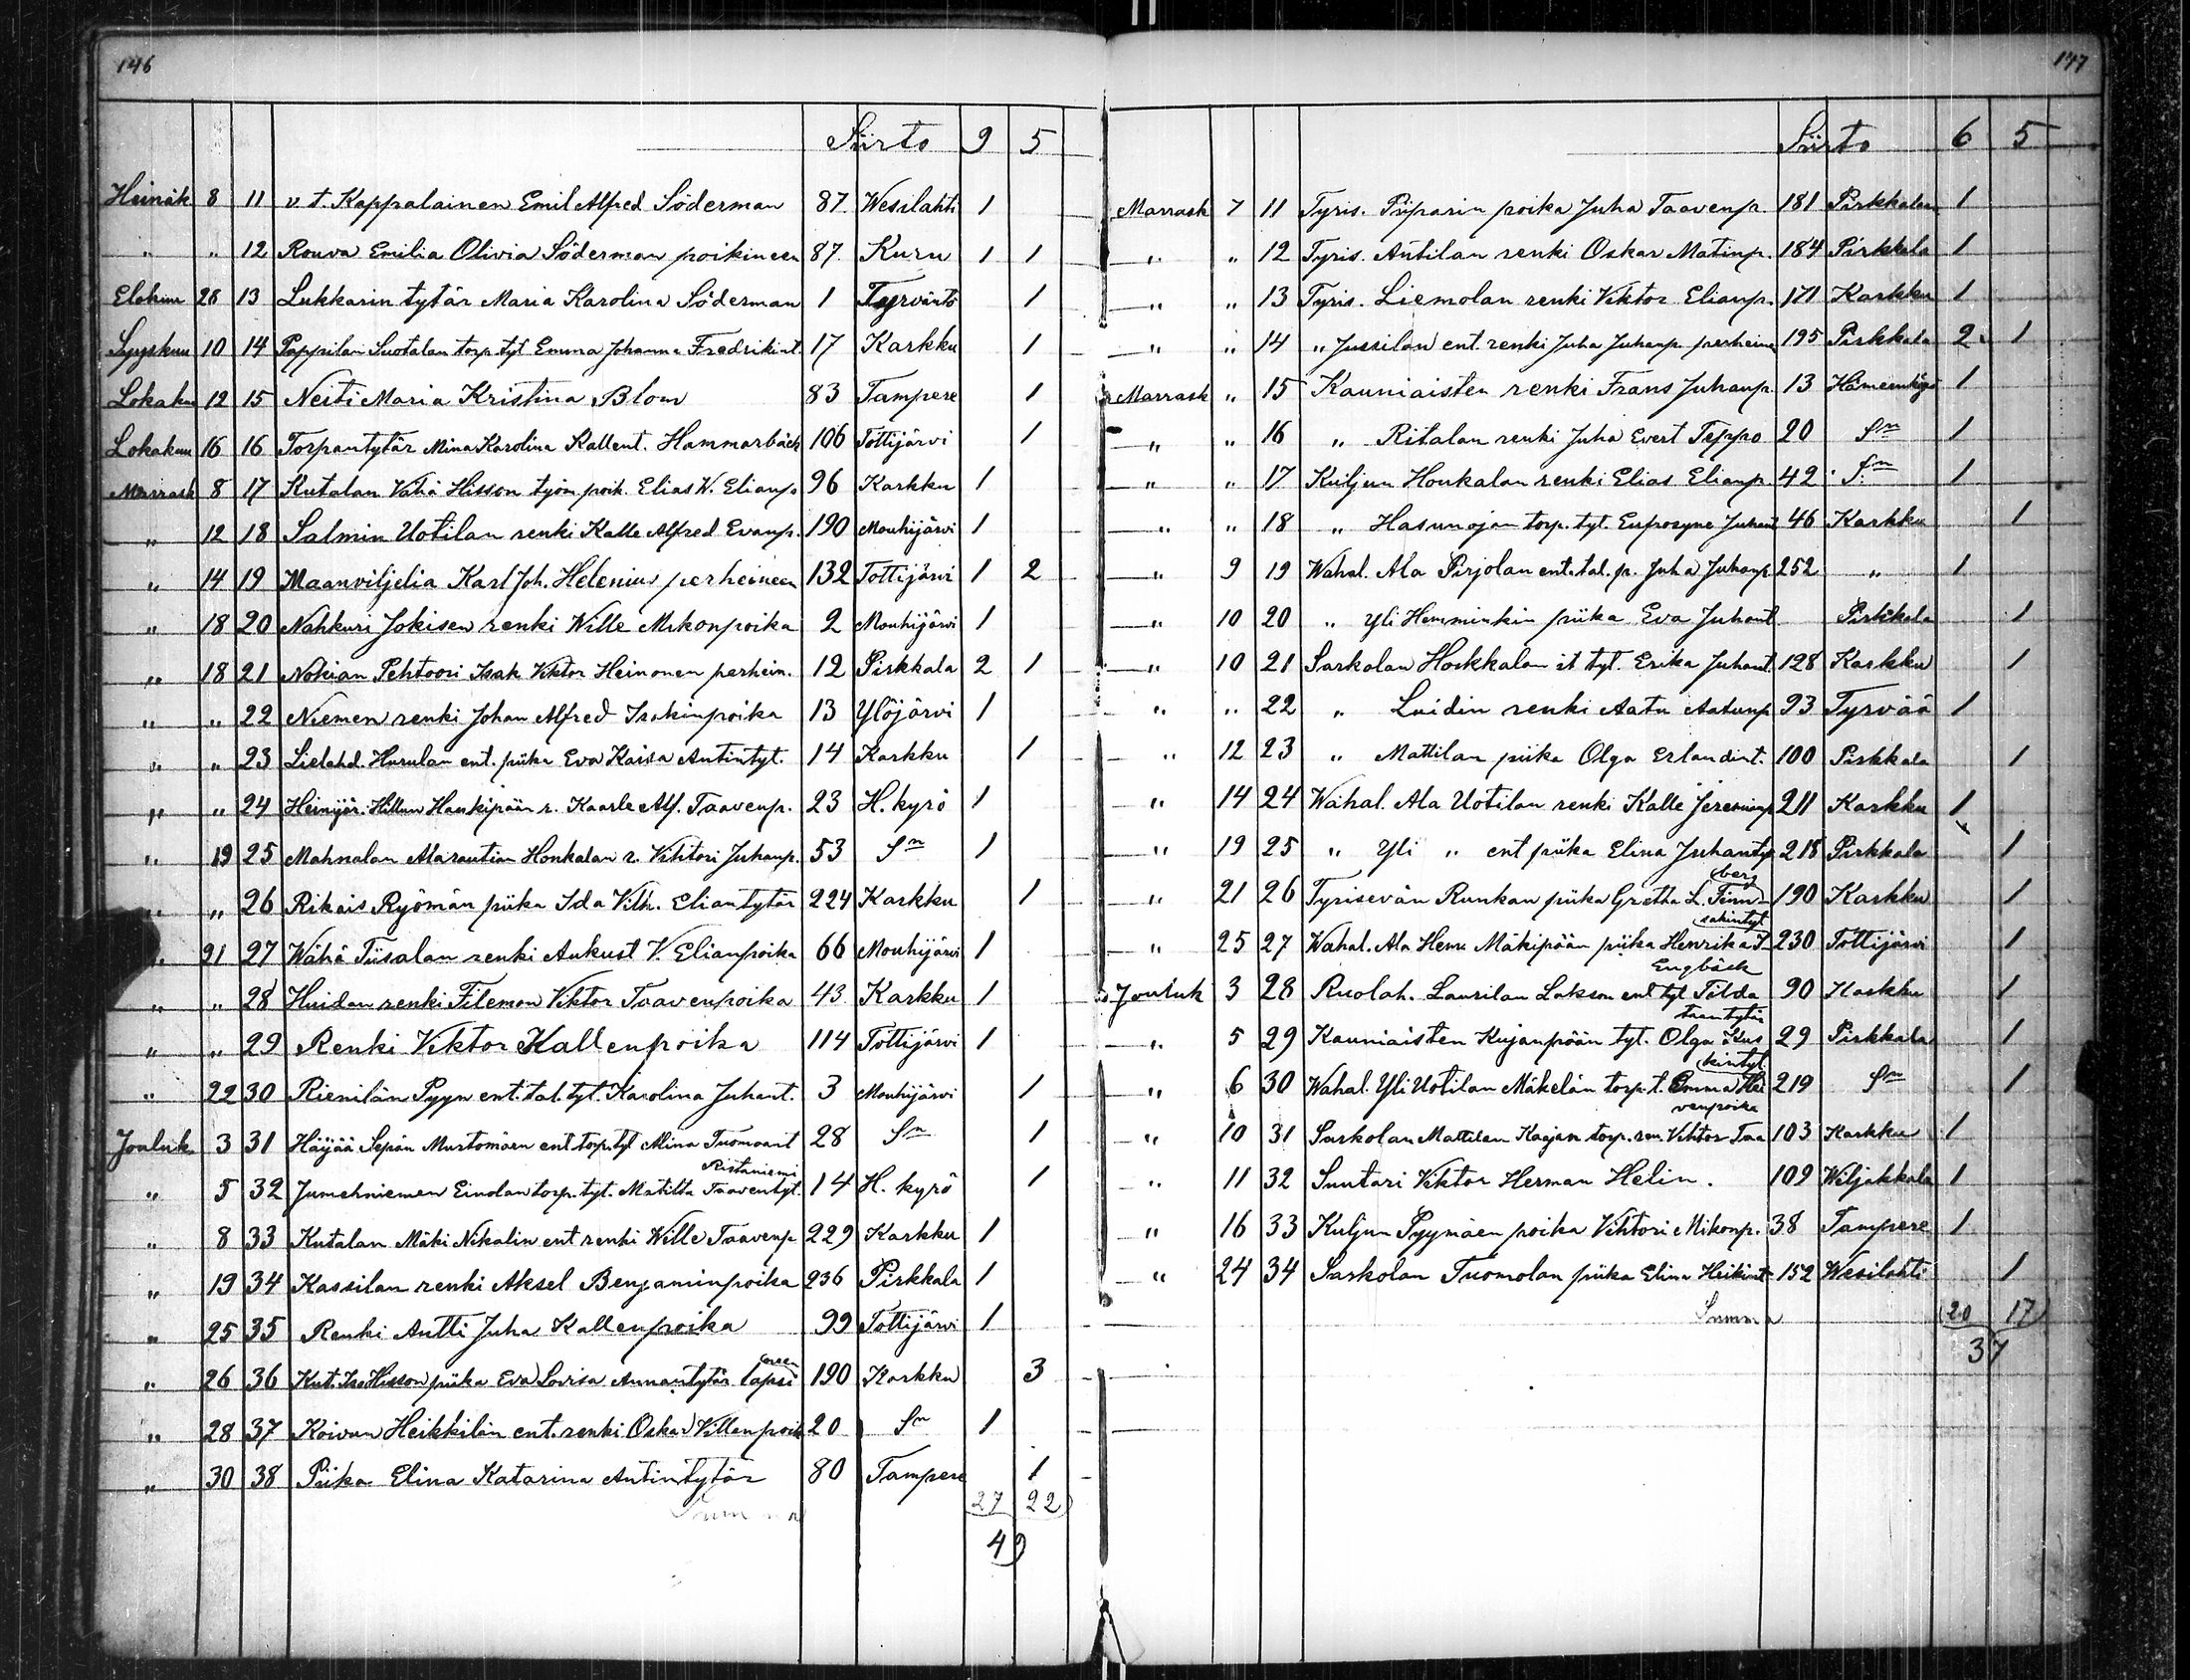 146
Siirto 9 5
Heinäk 8 11 v. t. Kappalainen Emil Alfred Söderman 87 Wesilahti 1
" " 12 Rouva Emilia Olivia Söderman poikineen 87 Kuru 1 1
Elokuu 28 13 Lukkarin tytär Maria Karolina Söderman 1 Tyrväntö 1
Syyskuu 10 14 Pappilan Suotalan torp. tyt Emma Johanna Fredrikint. 17 Karkku 1
Lokakuu 12 15 Neiti Maria Kristina Blom 83 Tampere 1
Lokakuu 16 16 Torpantytär Mina Karolina Kallent. Hammarbäck 106 Tottijärvi 1
Marrask 8 17 Kutalan Vähä Hisson työm. poik. Elias W. Elianp. 96 Karkku 1
" 12 18 Salmin Uotilan renki Kalle Alfred Evanp. 190 Mouhijärvi 1
" 14 19 Maanviljelia Karl Joh. Helenius perheineen 132 Tottijärvi 1 2
" 18 20 Nahkuri Jokisen renki Wille Mikonpoika 2 Mouhijärvi 1
" 18 21 Nokian Pehtoori Isak Viktor Heinonen perhein. 12 Pirkkala 2 1
" " 22 Niemen renki Johan Alfred Isakinpoika 13 Ylöjärvi 1
" " 23 Lielahd. Hurulan ent. piika Eva Kaisa Antintyt. 14 Karkku 1
" " 24 Heinijär. Hillun Haukipään r. Kaarle Alf. Taavenp. 23 H. kyrö 1
" 19 25 Mahnalan Alarautian Honkalan r. Vihtori Juhanp. 53 Sn 1
" " 26 Rikais Ryömän piika Ida Vilh. Eliantytär 224 Karkku 1
" 21 27 Wähä Tiisalan renki Aukust V. Elianpoika 66 Mouhijärvi 1
" " 28 Huidan renki Filemon Viktor Taavenpoika 43 Karkku 1
" " 29 Renki Viktor Kallenpoika 114 Tottijärvi 1
" 22 30 Rienilän Pyyn ent. tal. tyt. Karolina Juhant. 3 Mouhijärvi 1
Jouluk 3 31 Häijää Sepän Murtomäen ent torp. tyt Mina Tuomaant 28 Sn 1
Ristaniemi
" 5 32 Jumehniemen Einolan torp. tyt. Matilta Taaventyt. 14 H. kyrö 1
" 8 33 Kutalan Mäki Nikalin ent renki Wille Taavenp 229 Karkku 1
" 19 34 Kassilan renki Aksel Benjaminpoika 236 Pirkkala 1
" 25 35 Renki Antti Juha Kallenpoika 99 Tottijärvi 1
" 26 36 Kut. Iso Hisson piika Eva Lovisa Annantytär lapsi 190 Karkku 3
" 28 37 Koivun Heikkilän ent. renki Oskar Villenpoik 20 Sn 1
" 30 38 Piika Elina Katarina Antintytär 80 Tampere 1
Summa 27 22
49
147
Siirto 6 5
Marrask 7 11 Tyris. Piiparin poika Juha Taavenp. 181 Pirkkalan 1
" " 12 Tyris. Antilan renki Oskar Matinp. 184 Pirkkala 1
" " 13 Tyris. Liemolan renki Viktor Elianp. 171 Karkku 1
" " 14 " Jussilan ent. renki Juha Juhanp perheine 195 Pirkkala 2 1
Marrask " 15 Kauniaisten renki Frans Juhanp. 13 Hämeenkyrö 1
" " 16 " Ritalan renki Juha Evert Teppo 20 Sn 1
" " 17 Kuljun Honkalan renki Elias Elianp. 42 Sn 1
" " 18 " Hasunojan torp. tyt. Euprosyne Juhant 46 Karkku 1
" 9 19 Wahal. Ala Pirjolan ent. tal. p. Juha Juhanp 252 " 1
" 10 20 " Yli Hemminkin piika Eva Juhant Pirkkala 1
" 10 21 Sarkolan Hoskkalan it tyt. Erika Juhant. 128 Karkku 1
" " 22 " Luidin renki Aatu Aatunp 93 Tyrvää 1
" 12 23 " Mattilan piika Olga Erlandint. 100 Pirkkala 1
" 14 24 Wahal. Ala Uotilan renki Kalle Jeremianp 211 Karkku 1
" 19 25 " Yli " ent piika Elina Juhantyt 218 Pirkkala 1
berg
" 21 26 Tyrisevän Runkan piika Gretha L. Finn- 190 Karkku 1
sakintyt
" 25 27 Wahal. Ala Hemi Mäkipään piika Henrika I- 230 Tottijärvi 1
Engbäck
Jouluk 3 28 Ruolah. Laurilan Lakson ent tyt Tilda 90 Karkku 1
taantytär
" 5 29 Kauniaisten Kujanpään tyt. Olga Kus 29 Pirkkala 1
kintyt.
" 6 30 Wahal. Yli Uotilan Mäkelän torp. t. Emma Hei 219 Sn 1
venpoika
" 10 31 Sarkolan Mattilan Kaajan torp. ren. Vihtor Taa 103 Karkku 1
" 11 32 Suutari Viktor Herman Helin. 109 Wiljakkala 1
" 16 33 Kuljun Pyymäen poika Vihtori Mikonp. 38 Tampere 1
" 24 34 Sarkolan Tuomolan piika Elina Heikint 152 Wesilahti 1
Summa 20 17
37